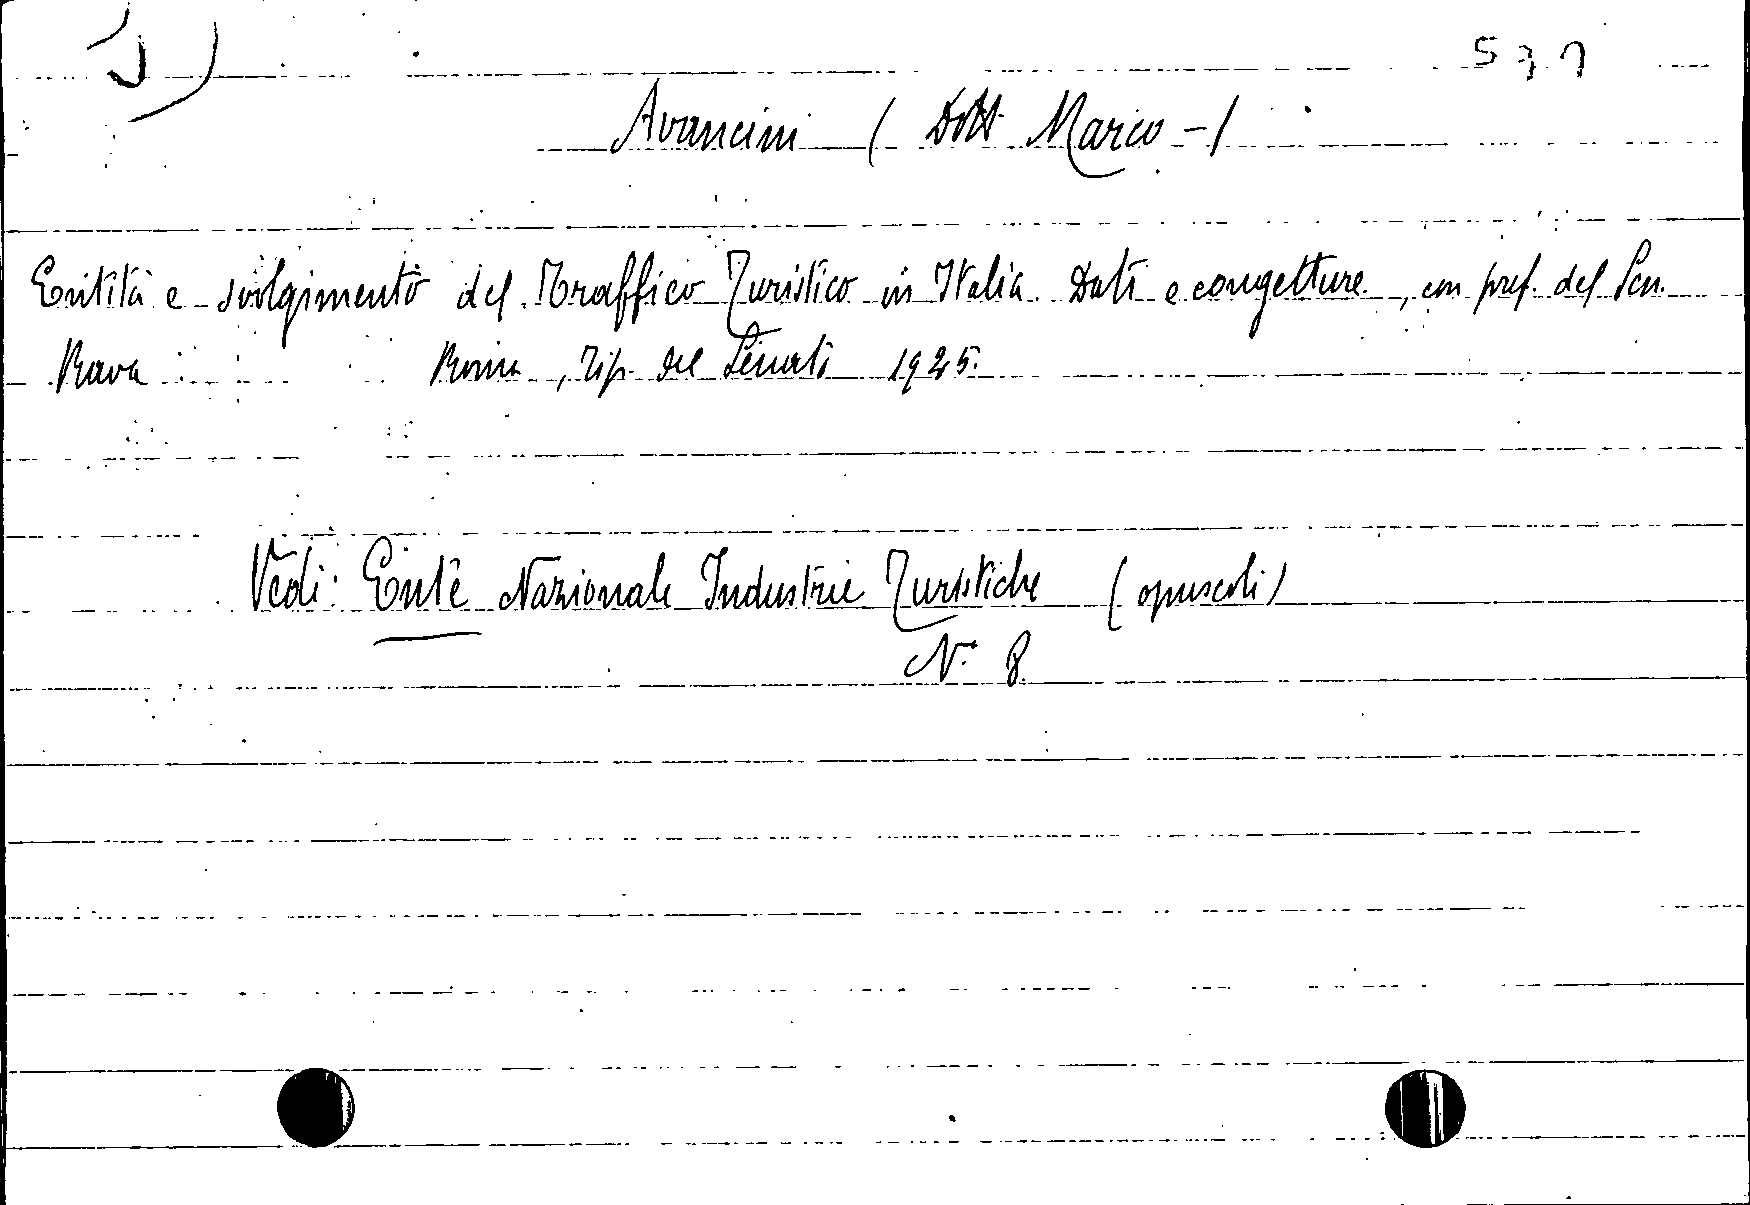 571
Avancini ( Dott Marco -)
Entità e svolgimento del Traffico Turistico in Italia. Dati e congetture, con pref. del Sen.
Rava Roma, Tip. del Senato 1925.
Vedi: Ente Nazionale Industrie Turistiche (opuscoli)
N. 8.